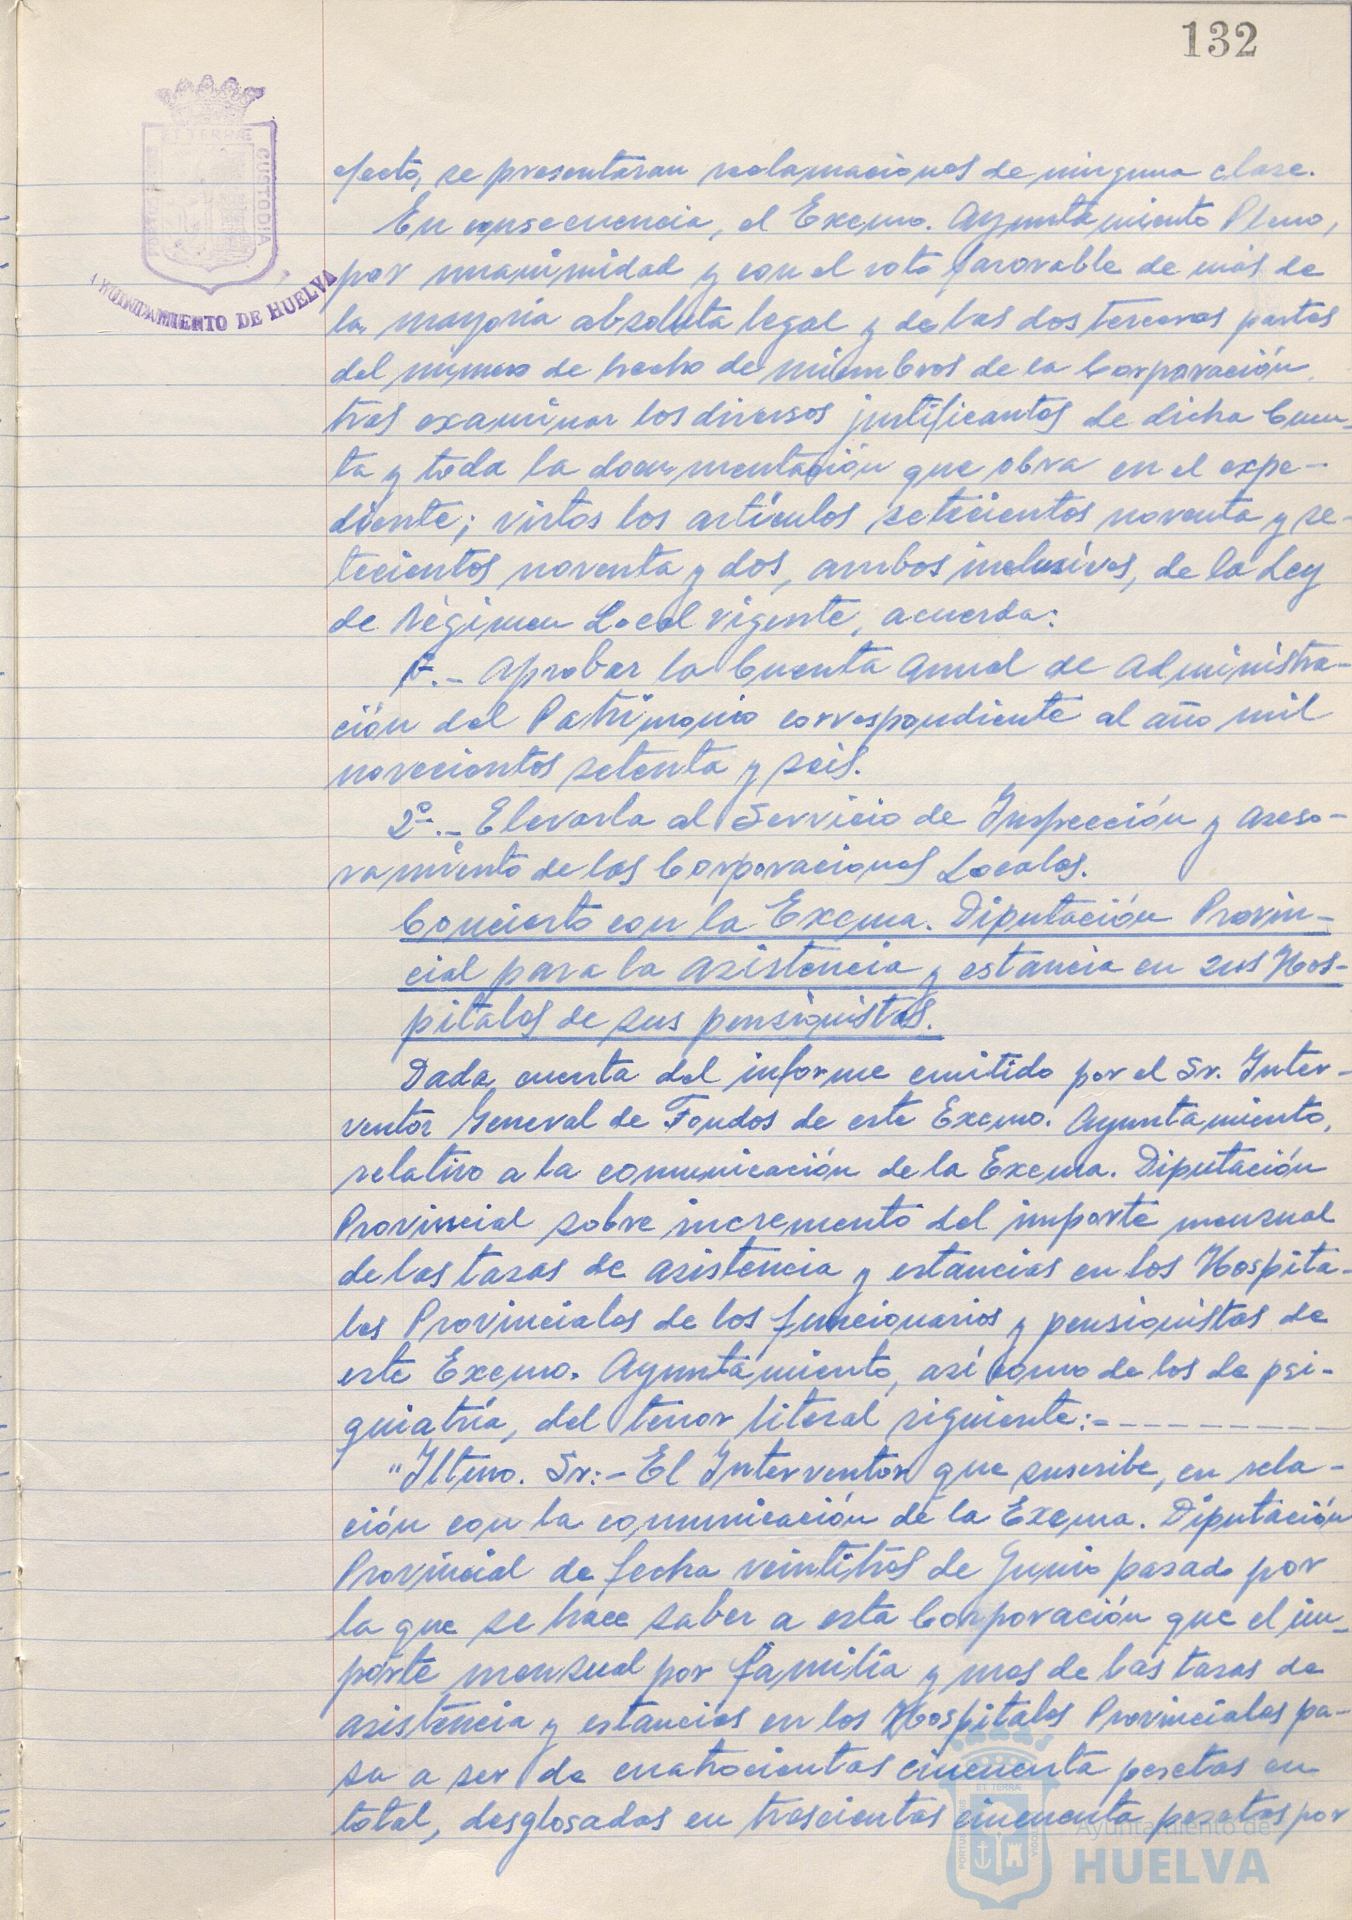 132
ET TERRÆ
CUSTODIA
AYUNTAMIENTO DE HUELVA
efecto, se presentaran reclamaciones de ninguna clase.
En consecuencia, el Excmo. Ayuntamiento Pleno,
por unanimidad y con el voto favorable de más de
la mayoría absoluta legal y de las dos terceras partes
del número de hecho de miembros de la Corporación,
tras examinar los diversos justificantes de dicha Cuen-
ta y toda la documentación que obra en el expe-
diente; vistos los artículos setecientos noventa y se-
tecientos noventa y dos, ambos inclusives, de la Ley
de Régimen Local vigente, acuerda:
1º.- Aprobar la Cuenta Anual de Administra-
ción del Patrimonio correspondiente al año mil
novecientos setenta y seis.
2º.- Elevarla al Servicio de Inspección y Aseso-
ramiento de las Corporaciones Locales.
Concierto con la Excma. Diputación Provin-
cial para la asistencia y estancia en sus Hos-
pitales de sus pensionistas.
Dada cuenta del informe emitido por el Sr. Inter-
ventor General de Fondos de este Excmo. Ayuntamiento,
relativo a la comunicación de la Excma. Diputación
Provincial sobre incremento del importe mensual
de las tasas de asistencia y estancias en los Hospita-
les Provinciales de los funcionarios y pensionistas de
este Excmo. Ayuntamiento, así como de los de psi-
quiatría, del tenor literal siguiente:- - - - - - - - -
"Iltmo. Sr:- El Interventor que suscribe, en rela-
ción con la comunicación de la Excma. Diputación
Provincial de fecha veintitrés de Junio pasado por
la que se hace saber a esta Corporación que el im-
porte mensual por familia y mes de las tasas de
asistencia y estancias en los Hospitales Provinciales pa-
sa a ser de cuatrocientas cincuenta pesetas en
total, desglosadas en trescientas cincuenta pesetas por
ET TERRÆ
Ayuntamiento de
HUELVA